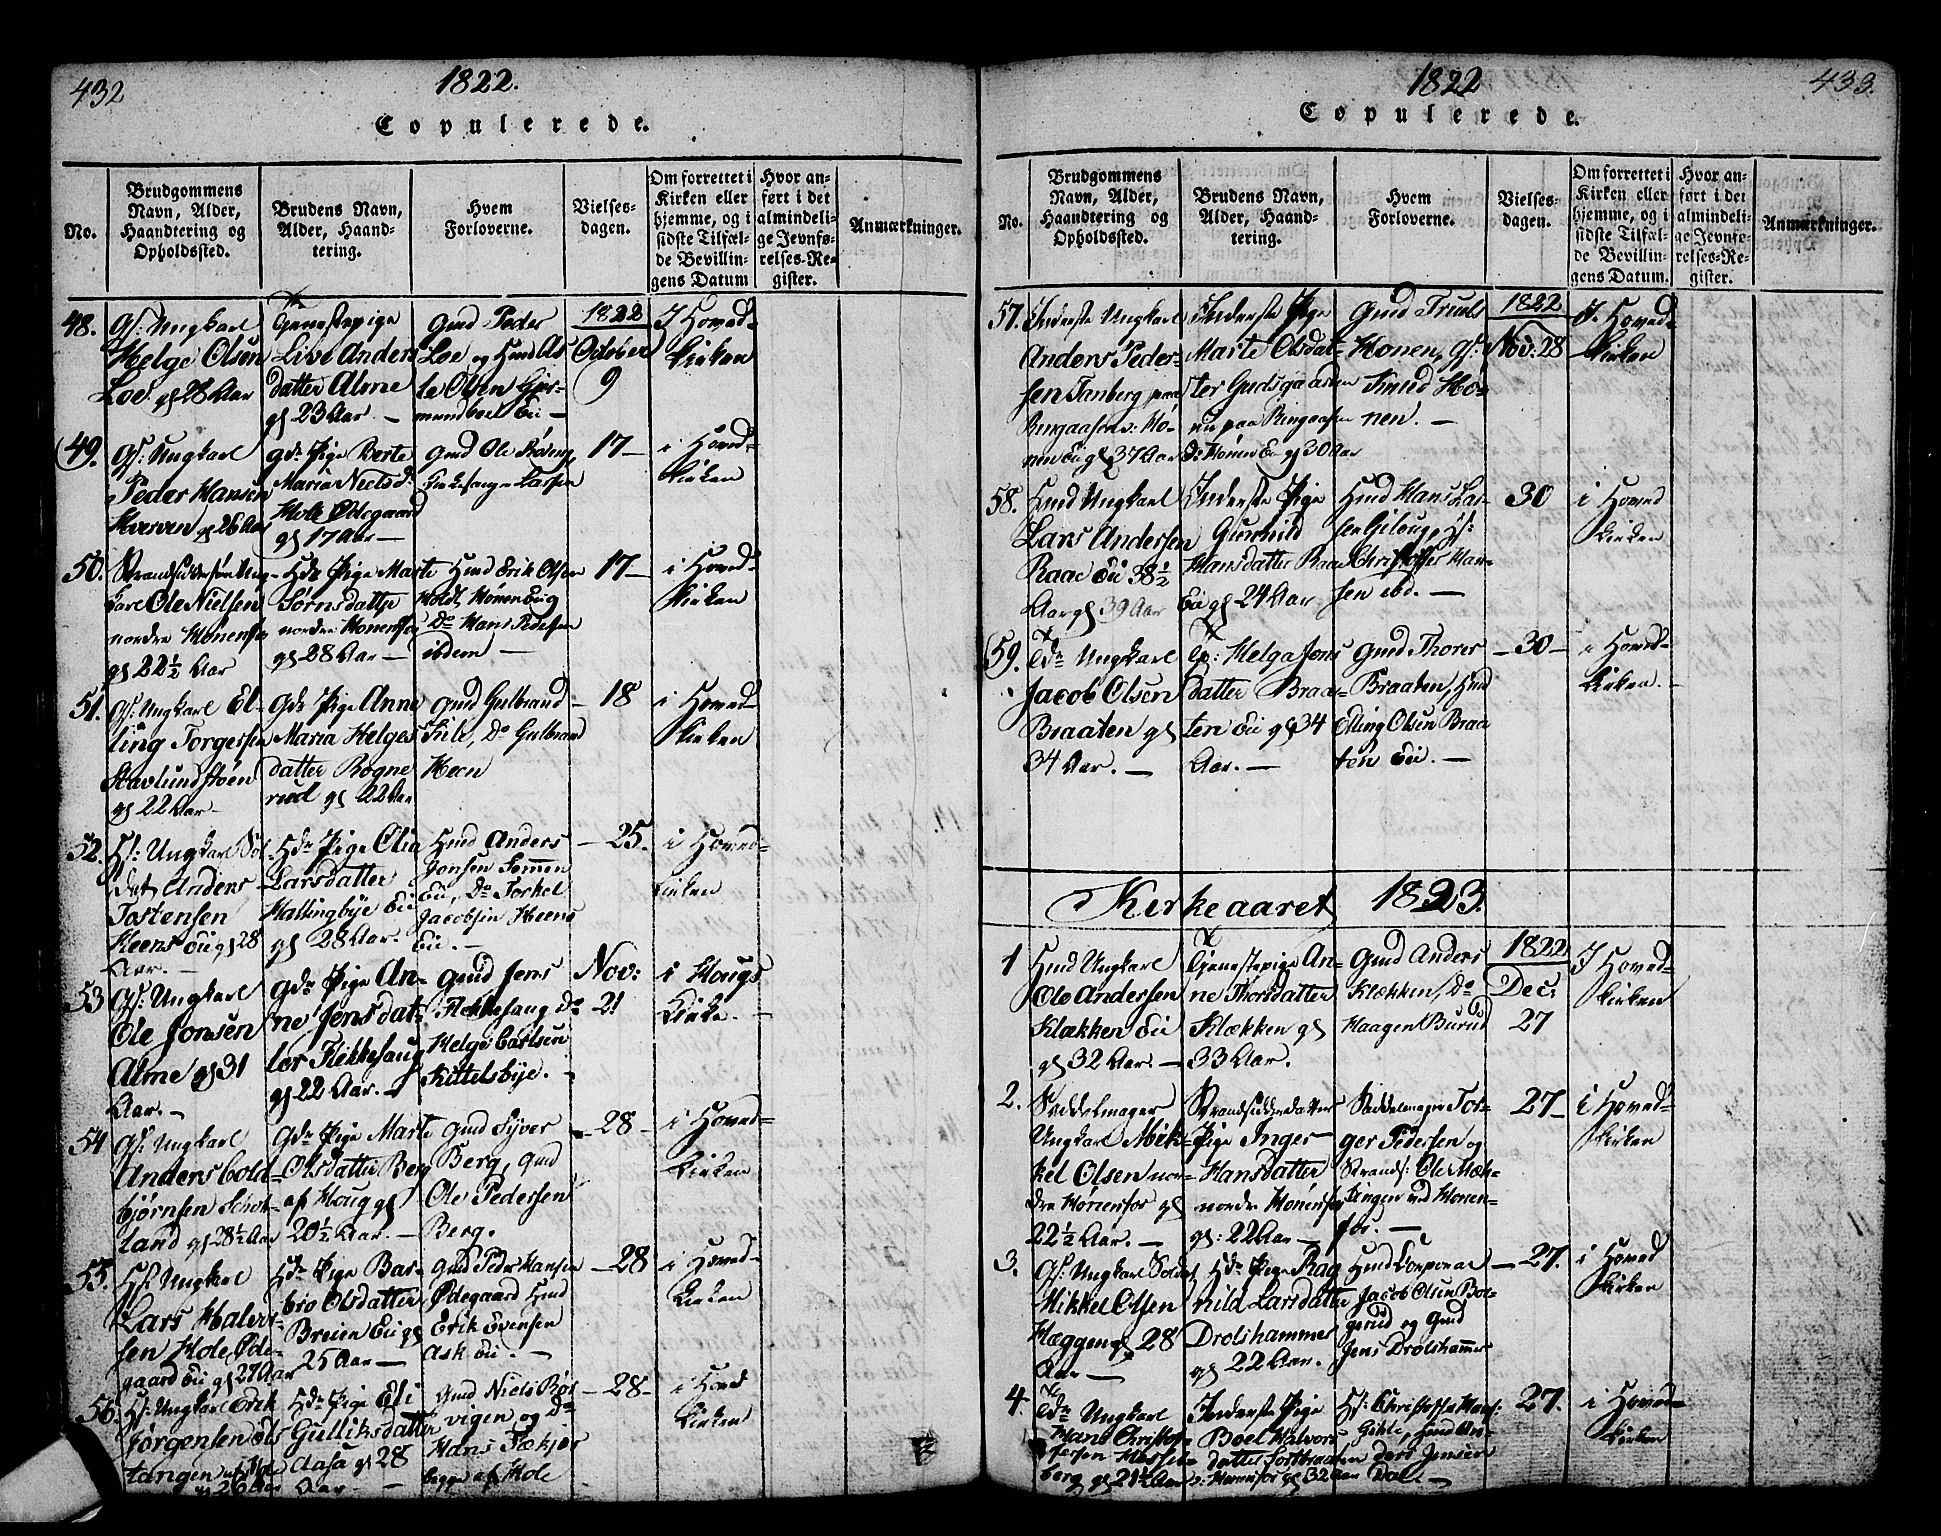 432
1822.
Copulerede.
No.
Brudgommens
Navn, Alder,
Haandtering og
Opholdssted.
Brudens Navn,
Alder, Haand-
tering.
Hvem
Forloverne.
Vielses-
dagen.
Om forrettet i
Kirken eller
hjemme, og i
sidste Tilfæl-
de Bevillin-
gens Datum
Hvor an-
ført i det
almindeli-
ge Jevnfø-
relses-Re-
gister.
Anmærkninger.
48.
Gs: Ungkarl
Helge Olsen
Loe. gl 28 Aar
Tjenestepige
Live Anders
datter Alme
gl 23 Aar. —
Gmd Peder
Loe og Hmd As
le Olsen Gjer-
mundboe Eie —
1822
October
9
I Hoved-
Kirken
49.
Gs: Ungkarl
Peder Hansen
Hverven gl 26 Aar
Gdr Pige Berte
Maria Nielsd:
Hole Ødegaard
gl 17 Aar —
Gmd Ole
Larsen
17 —
i Hoved-
Kirken
50.
Strandsidder
karl Ole Nielsen
nordre Hønenfos
gl 22½ Aar
Hdr Pige Marte
Sørnsdatter
nordre Hønenfos
gl 28 Aar —
Hmd Erik Olsen
Holdt, Hønen Eug
Do Hans Pedersen
ibdem —
17 —
i Hoved-
Kirken
51.
Gs: Ungkarl El-
ling Torgersen
Stavlundstøen
gl 22 Aar —
Gdr Pige Anne
Maria Helges
datter Rogne
rud gl 22 Aar
Gmd Gulbrand
Kile, Do Gulbrand
Heen
— 18
i Hoved-
Kirken
52.
Hs: Ungkarl Sol-
dat Anders
Tostensen
Heens Eie gl 28
Aar. —
Hdr Pige Olia
Larsdatter
Hallingbye Eie
gl 28 Aar.
Hmd Anders
Jonsen Semmen
Eie, Do Torkel
Jacobsen Heens
Eie. —
— 25.
i Hoved-
Kirken
53
Gs: Ungkarl
Ole Jonsen
Alme gl 31
Aar. —
Gdr Pige An-
ne Jensdat-
ter Flekkesaug
gl 22 Aar. —
Gmd Jens
Flekkesaug Do
Helge Carlsen
Kittelsbye. —
Nov:
21
i Hougs
Kirke. —
54
Gs: Ungkarl
Anders Cold-
bjørnsen Schot-
land gl 28½ Aar
Gdr Pige Marte
Olsdatter Berg
af Houg gl
20½ Aar. —
Gmd Syver
Berg, Gmd
Ole Pedersen
Berg.
— 28 —
i Hoved-
Kirken
55.
Hs: Ungkarl
Lars Halvor-
sen Hole Øde-
gaard Eie gl 29 Aar
Hdr Pige Bar-
bro Olsdatter
Breien Eie gl
25 Aar —
Gmd Peder Hansen
Ødegaard Hmd
Erik Evensen
Ask Eie. —
— 28
i Hoved-
Kirken
56.
Hs: Ungkarl Erik
Jørgensen Ols
tangen af Hole
gl 26 Aar
Hdr Pige Eli
Gulliksdatter
Aasa gl 28
Aar —
Gmd Niels Røs
vigen og Do
Hans Fækjør
bygge af Hole
— 28 —
i Hoved
Kirken
1822
433.
Copulerede.
No.
Brudgommens
Navn, Alder,
Haandtering og
Opholdssted.
Brudens Navn,
Alder, Haand-
tering.
Hvem
Forloverne.
Vielses-
dagen.
Om forrettet i
Kirken eller
hjemme, og i
sidste Tilfæl-
de Bevillin-
gens Datum.
Hvor an-
ført i det
almindeli-
ge Jevnfø-
relses-Re-
gister.
Anmærkninger.
57.
Inderste Ungkarl
Anders Peder-
sen Tanberg, paa
Ringaasen v: Hø-
nen Eie gl 37 Aar
Inderste Pige
Marte Olsdat-
ter Gudsgaarden
nu paa Ringaasen
v: Hønen Eie gl 30 Aar
Gmd Truels
Honen, Gs:
Knud Ho-
nen. —
1822
Nov: 28
I Hoved-
Kirken
58.
Hmd Ungkarl
Lars Andersen
Raae Eie 38½
Aar gl 39 Aar
Inderste Pige
Gunnild
Hansdatter Raa
Eie gl 24 Aar
Hmd Hans Lar-
sen Gihug, Hs:
Christoffer Han-
sen ibd. —
30
i Hoved
Kirken
59.
Tdr Ungkarl
Jacob Olsen
Braaten gl
34 Aar. —
Tp: Helga Jons
datter Braa-
ten Eie gl 34
Aar. —
Gmd Thorer
Braaten, Hmd
Elling Olsen Braa
ten Eie. —
— 30 —
i Hoved-
Kirken. —
Kirkeaaret 1823.
1
Hmd Ungkarl
Ole Andersen
Klækken Eie
gl 32 Aar. —
Tjenestepige An-
ne Thorsdatter
Klækken gl
33 Aar.
Gmd Anders
Klækken, Do
Haagen Burud
1822
Dec:
27
I Hoved-
Kirken
2.
Saddelmager
Ungkarl Mik-
kel Olsen nor-
dre Hønenfos gl
22½ Aar. —
Strandsidderdatter
Pige Inger
Hansdatter
nordre Hønenfos
gl: 22 Aar —
Saddelmager Tor-
ger Pedersen og
Strands: Ole Mæh-
lingen ved Honen-
fos. —
27 —
i Hoved-
Kirken
3.
Gs: Ungkarl Soldat
Mikkel Olsen
Hæggen gl 28
Aar —
Hdr Pige Rag
nild Larsdatter
Drolshammer
gl 22 Aar.
Hmd Corporal
Jacob Olsen Bol-
gerud og Gmd
Jens Drolshammer
— 27.
i Hoved
Kirken
4.
Tdr Ungkarl
Hans Christof-
fersen Hessel-
berg gl 21½ Aar
Inderste Pige
Boel Halvors-
datter Fortbraaten
v: Hønenfos gl 32 Aar
Hs: Christoffer Hans:
Gihle, Hmd An-
ders Jensen
Dale —
27.
i Hoved-
Kirken